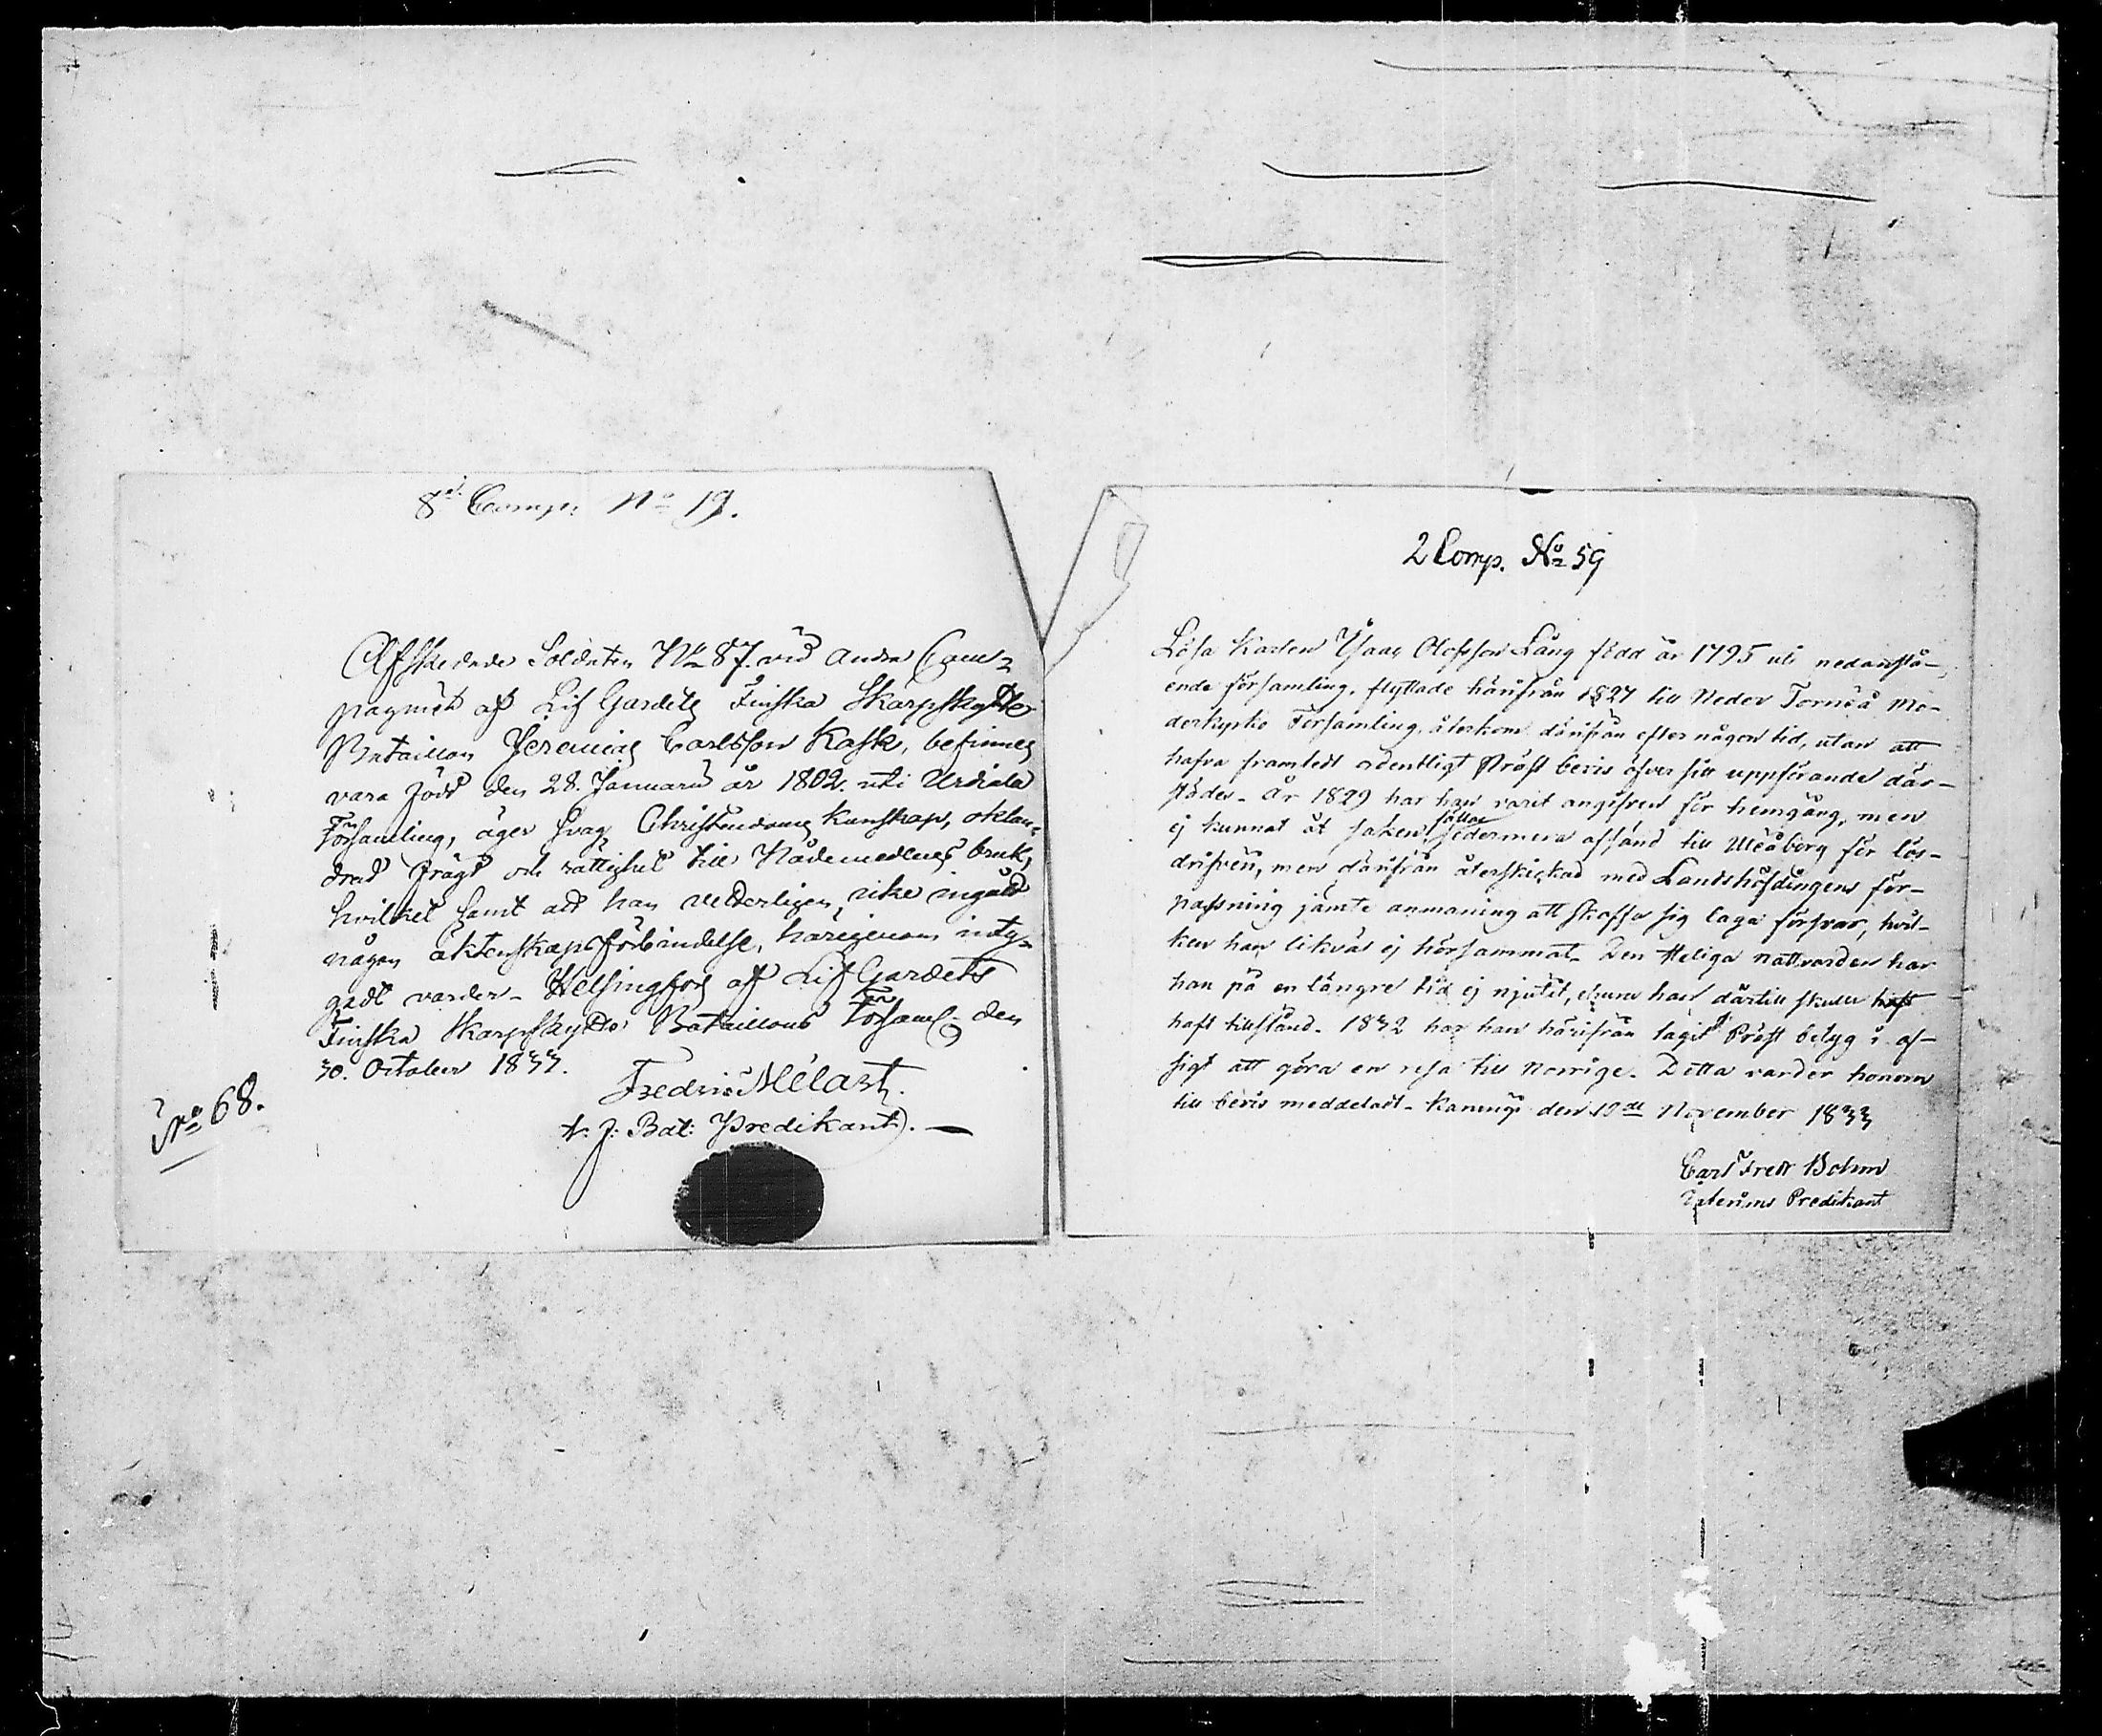 8de Comp. No 19.
Afskedade Soldaten No 87. vid Andra Com-
pagniet af Lif Gardets Finska Skarpskytte
Bataillon Jeremias Carlsson Kask, befinnes
vara född den 28. Januarii år 1802. uti Urdiala
Församling, äger svag Christendoms kunskap, oklan-
drad frägd och rättighet till Nådemedlens bruk,
hvilket samt att han vederligen icke ingått
någon äktenskapsförbindelse, härigenom inty-
gadt varder. Helsingfors af Lif Gardets
Finska Skarpskytte Bataillons Församl: den
30. October 1833.
Fredric Melart.
t. f. Bat: Predikant.
No 68.
2 Comp. No 59
Lösa Karlen Isaac Olofsson Lång född år 1795 uti nedanstå-
ende församling, flyttade härifrån 1827 till Neder Torneå Mo-
derkyrko Församling, återkom därifrån efter någon tid, utan att
hafva framtedt ordentligt Präst bevis öfver sitt uppförande där-
städes. År 1829 har han varit angifven för hemgång, men
ej kunnat åt saken fällas, sedermera afsänd till Uleåborg för lös-
drifveri, men därifrån återskickad med Landshöfdingens för-
passning jämte anmaning att skaffa sig laga försvar, hvil-
ken han likväl ej hörsammat. Den Heliga nattvarden har
han på en längre tid ej njutit, ehuru han därtill skulle haft
haft tillstånd. 1832 har han härifrån tagit Präst betyg i af-
sigt att göra en resa till Norrige. Detta varder honom
till bevis meddeladt. Karungi den 10de November 1833
Carl Fredr Bohm
Interims Predikant